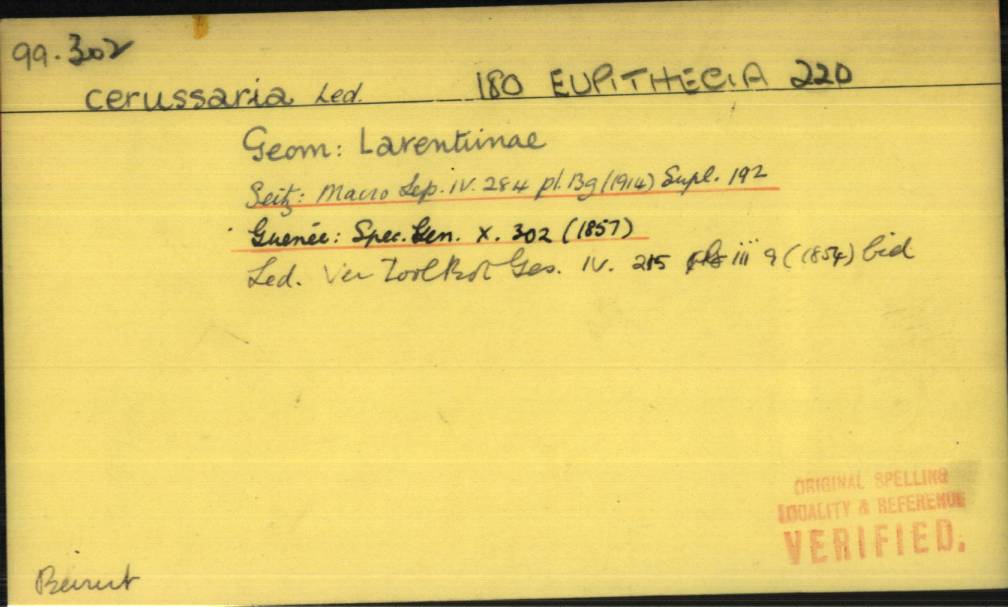 99.302
cerussaria Led. 180 EUPITHECIA 220
Geom: Larentiinae
Seitz: Macro Lep. iv. 284 pl. 13g (1914) Supl. 192
Guenée: Spec. Gen. X. 302 (1857)
Led. Ver Zool Bot Ges. IV. 215 iii 9 (1854) bid
ORIGINAL SPELLING
LOCALITY & REFERENCE
VERIFIED.
Beirut